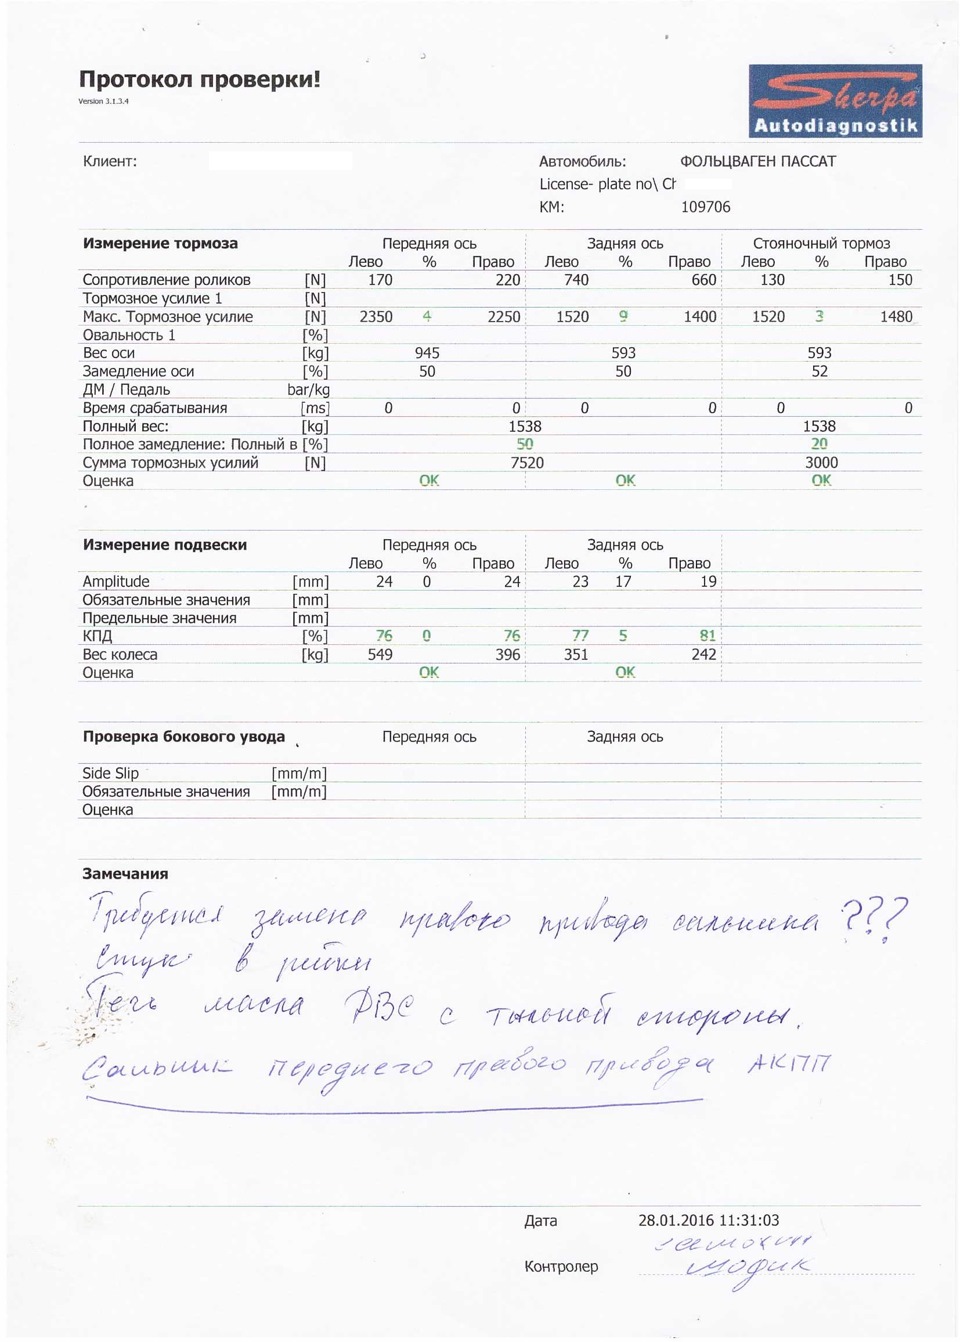 Протокол проверки!
Version 3.1.3.4
Sherpa
Autodiagnostik
Клиент:
Автомобиль: ФОЛЬЦВАГЕН ПАССАТ
License- plate no\ Ch
КМ: 109706
Измерение тормоза Передняя ось Задняя ось Стояночный тормоз
Лево % Право Лево % Право Лево % Право
Сопротивление роликов [N] 170 220 740 660 130 150
Тормозное усилие 1 [N]
Макс. Тормозное усилие [N] 2350 4 2250 1520 9 1400 1520 3 1480
Овальность 1 [%]
Вес оси [kg] 945 593 593
Замедление оси [%] 50 50 52
ДМ / Педаль bar/kg
Время срабатывания [ms] 0 0 0 0 0 0
Полный вес: [kg] 1538 1538
Полное замедление: Полный в [%] 50 20
Сумма тормозных усилий [N] 7520 3000
Оценка OK OK OK
Измерение подвески Передняя ось Задняя ось
Лево % Право Лево % Право
Amplitude [mm] 24 0 24 23 17 19
Обязательные значения [mm]
Предельные значения [mm]
КПД [%] 76 0 76 77 5 81
Вес колеса [kg] 549 396 351 242
Оценка OK OK
Проверка бокового увода Передняя ось Задняя ось
Side Slip [mm/m]
Обязательные значения [mm/m]
Оценка
Замечания
Требуется замена правого привода сальника ???
Стук в рейки
Течь масла ДВС с тыльной стороны.
Сальник переднего правого привода АКПП
Дата 28.01.2016 11:31:03
Контролер